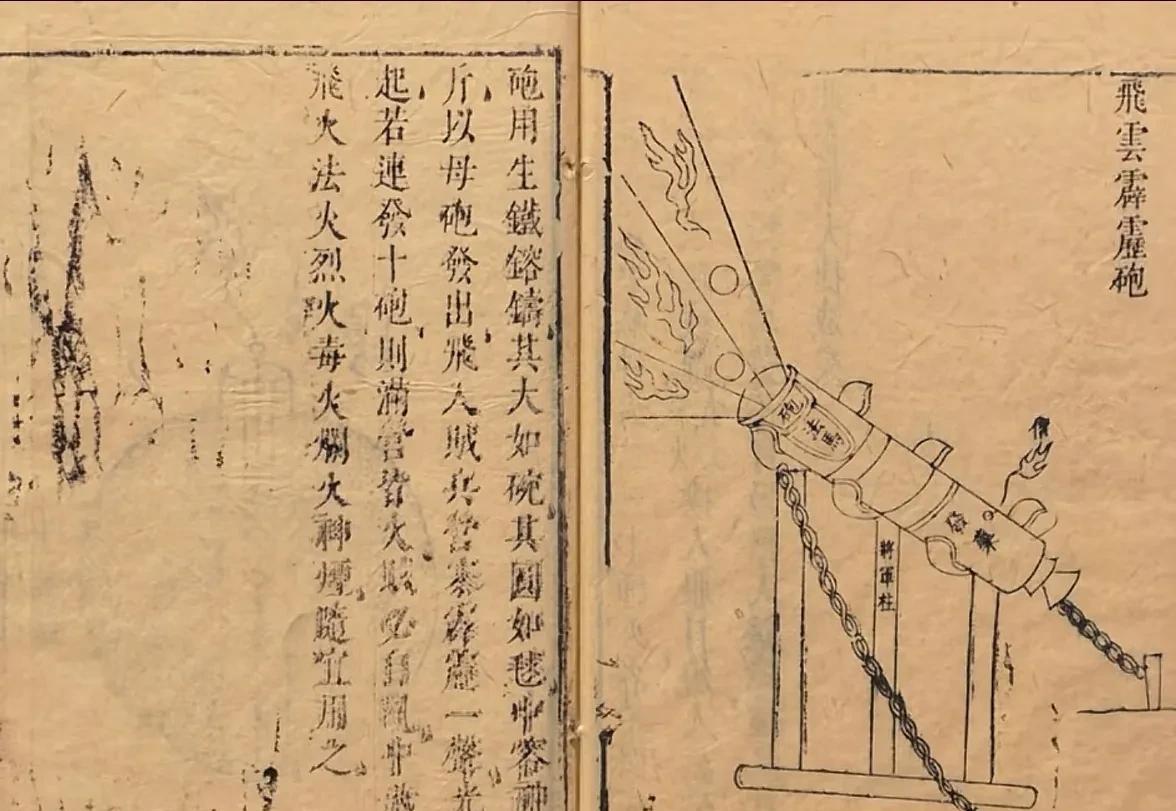 飛雲霹靂砲
砲馬
信
發藥
將軍柱
砲用生鐵鎔鑄其大如碗其圓如毬中容神
斤以母砲發出飛入賊兵營寨霹靂一聲光
起若連發十砲則滿營皆火賊必自亂中藏
飛火法火烈火毒火爛火神煙隨宜用之